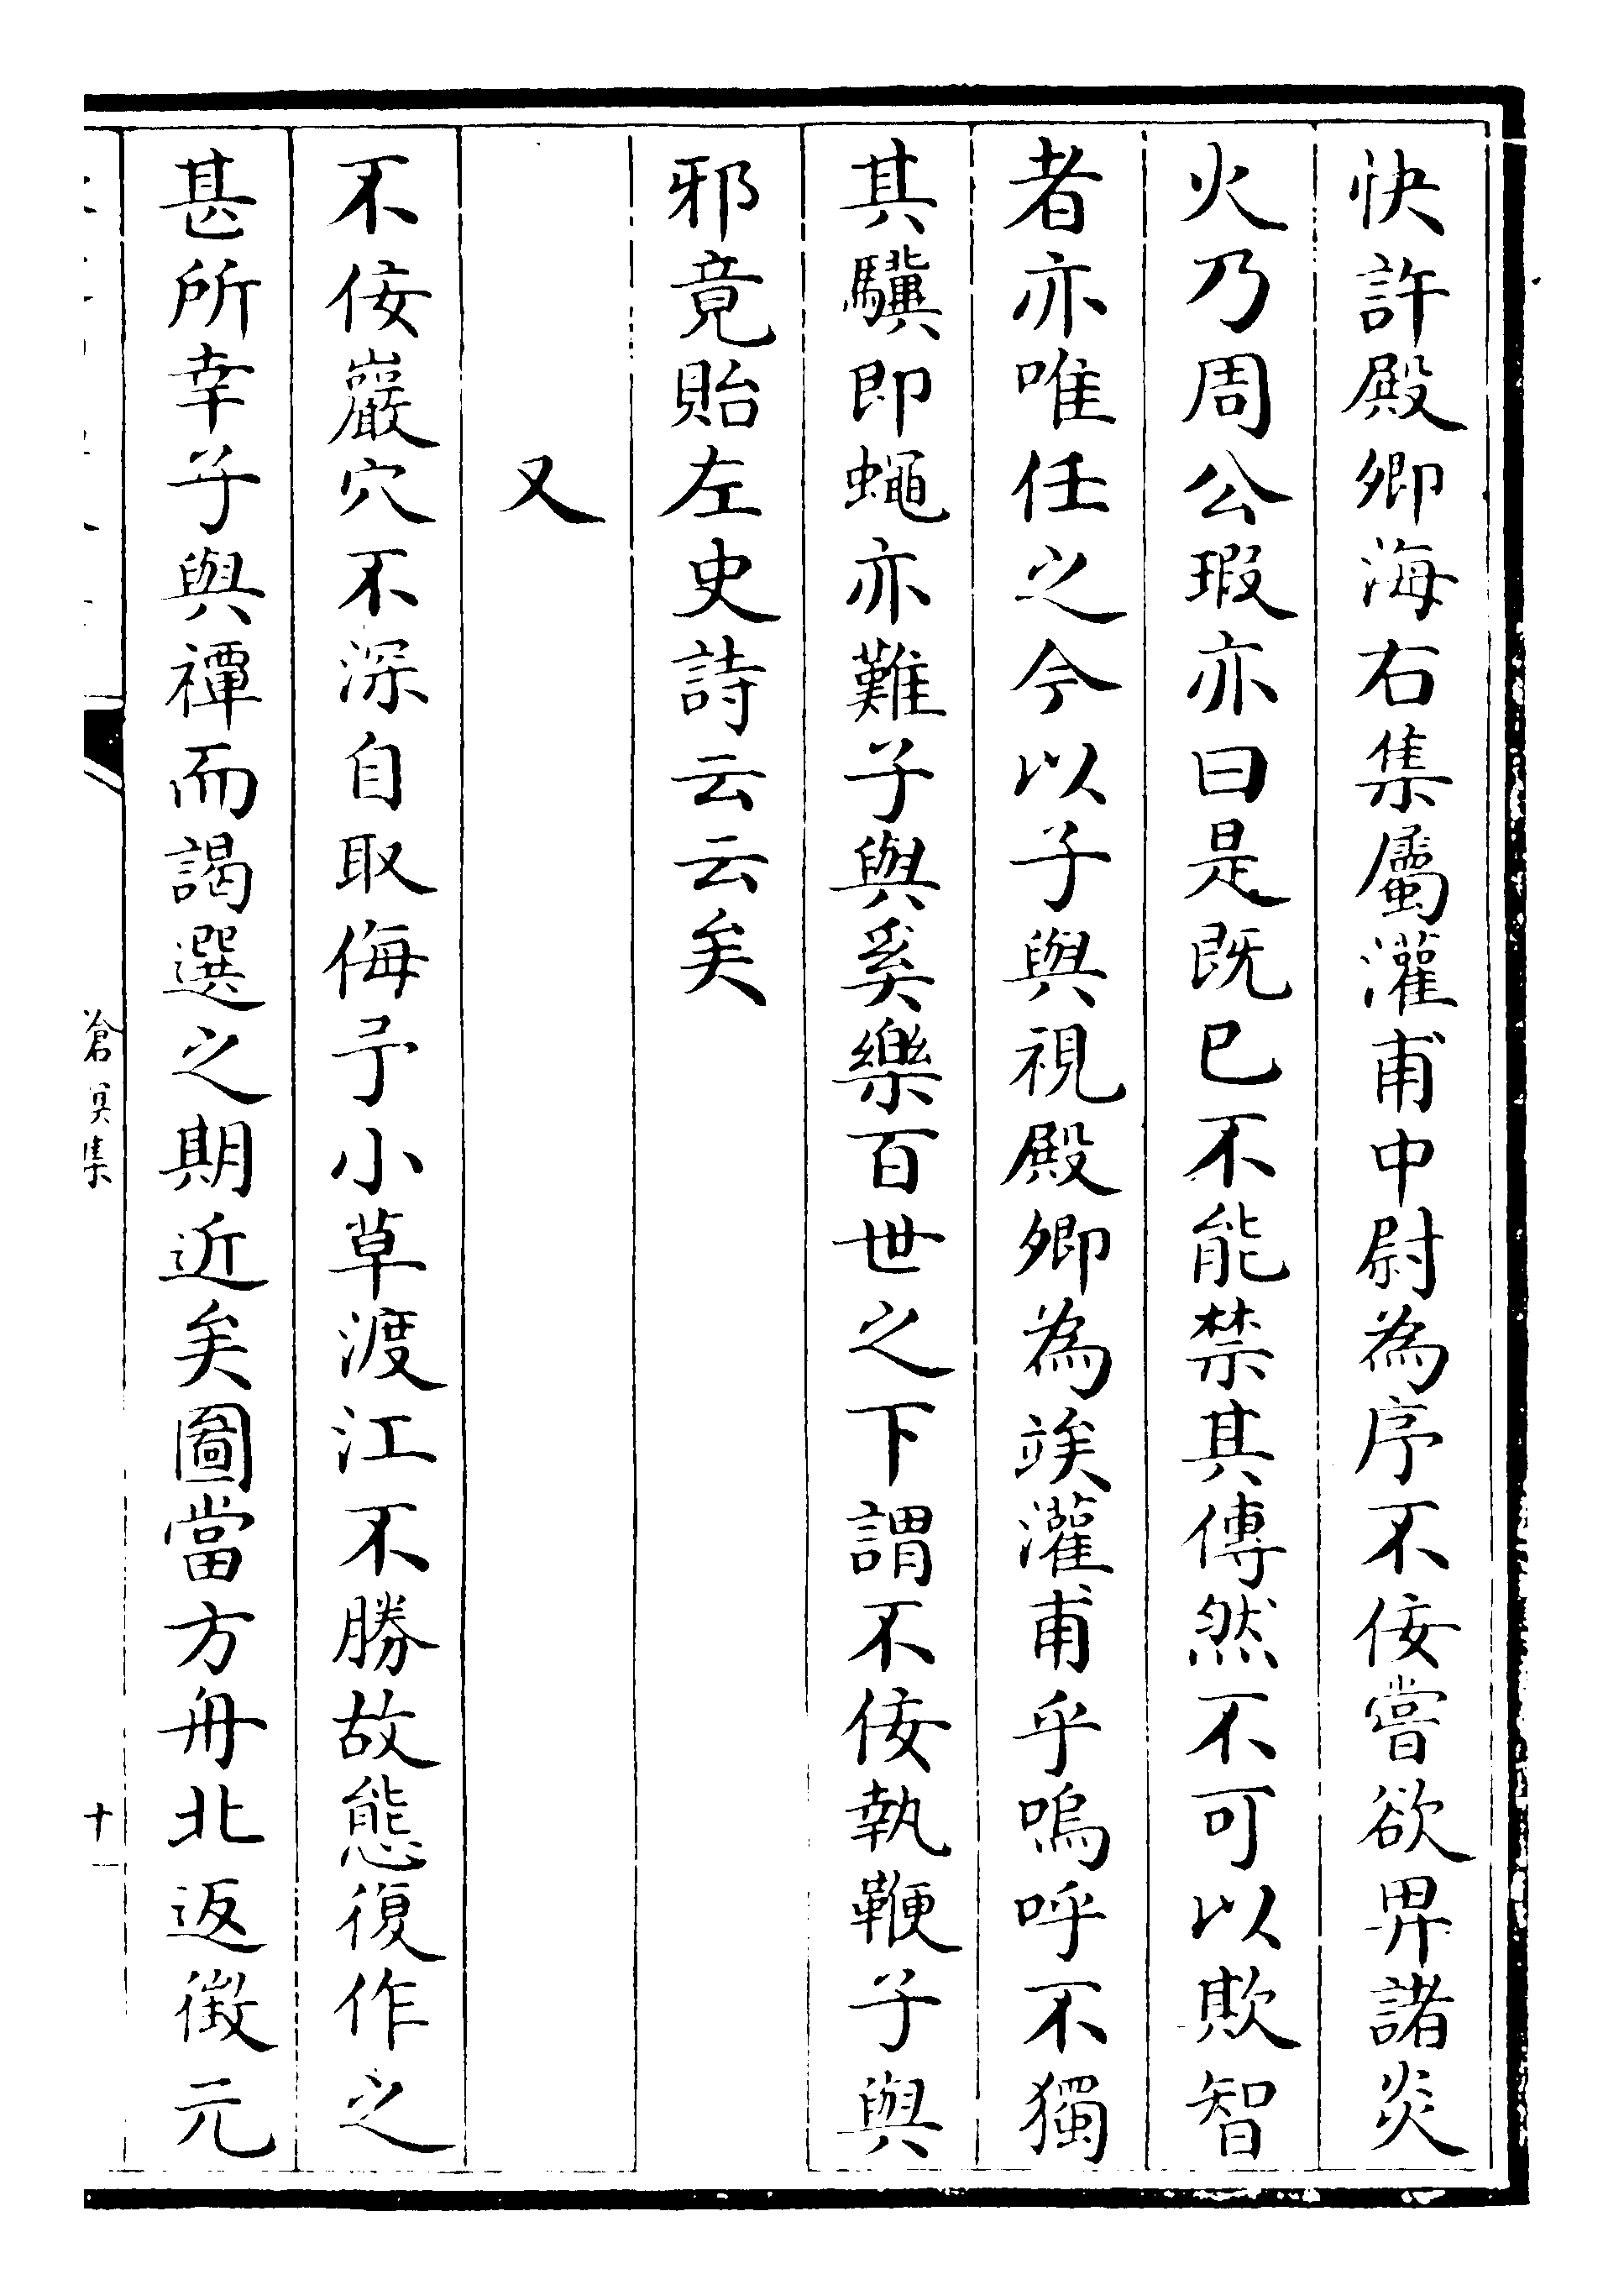 快許殿卿海右集屬灌甫中尉為序不佞嘗欲畀諸炎
火乃周公瑕亦曰是既已不能禁其傳然不可以欺智
者亦唯任之今以子與視殿卿為竢灌甫乎嗚呼不獨
其驥即蠅亦難子與奚樂百世之下謂不佞執鞭子與
邪竟貽左史詩云云矣
又
不佞巖穴不深自取侮予小草渡江不勝故態復作之
甚所幸子與禫而謁選之期近矣圖當方舟北返徵元
滄溟集
十一